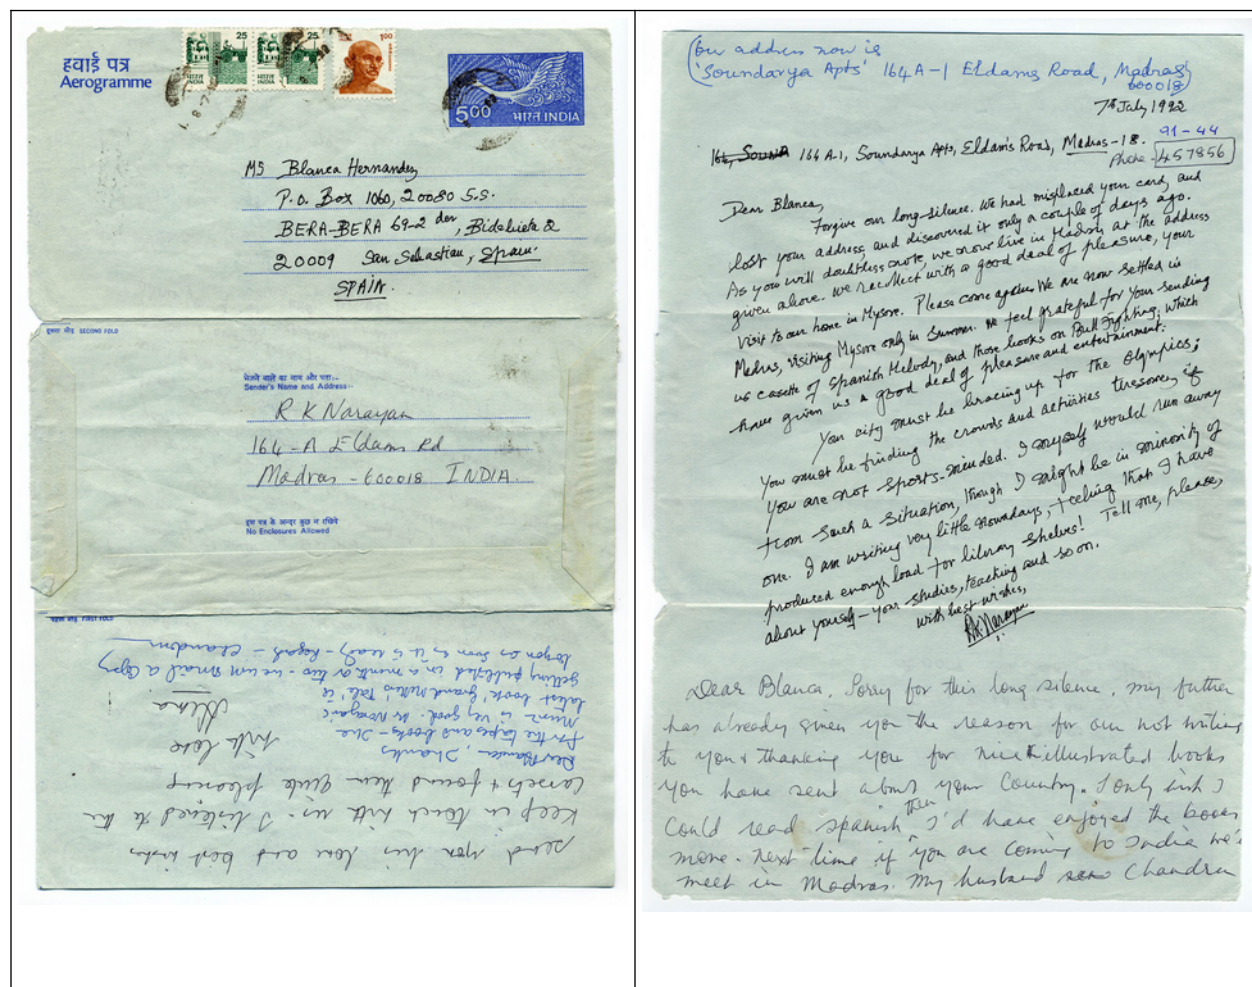 हवाई पत्र
Aerogramme
25
भारत INDIA
25
भारत INDIA
1.00
5.00 भारत INDIA
MS Blanca Hernandez
P.O. Box 1060, 20080 S.S.
BERA-BERA 69-2 der, Bidebieta 2
20009 San Sebastian, Spain
SPAIN.
दूसरा मोड़ SECOND FOLD
भेजने वाले का नाम और पता:-
Sender's Name and Address:-
R K Narayan
164-A Eldams Rd
Madras - 600018 INDIA.
इस पत्र के अन्दर कुछ न रखिये
No Enclosures Allowed
पहला मोड़ FIRST FOLD
send you his love and best wishes
Keep in touch with us. I listened to the
cassets & found them quite pleasing
With love
Hema
Dear Blanca, Thanks
for the tapes and books - The
Music is very good. Mr Narayan's
latest book 'Grandmother's Tale' is
getting published in a month or two - we will mail a copy
to you as soon as it is ready - Regards - Chandru
(Our address now is
'Soundarya Apts' 164 A-1 Eldams Road, Madras
600018)
7th July 1992
164, Sound 164 A-1, Soundarya Apts, Eldam's Road, Madras-18.
91-44
Phone - 457856
Dear Blanca,
Forgive our long silence. We had misplaced your card, and
lost your address, and discovered it only a couple of days ago.
As you will doubtless note, we now live in Madras at the address
given above. We recollect with a good deal of pleasure, your
visit to our home in Mysore. Please come again. We are now settled in
Madras, visiting Mysore only in summer. We feel grateful for your sending
us casette of Spanish Melody, and those books on Bull Fighting, which
have given us a good deal of pleasure and entertainment.
Your city must be bracing up for the Olympics;
You must be finding the crowds and activities tiresome, if
you are not sports-minded. I myself would run away
from such a situation, though I might be in minority of
one. I am writing very little nowadays, feeling that I have
produced enough load for library shelves! Tell me, please,
about yourself - your studies, teaching and so on.
with best wishes,
R.K. Narayan
Dear Blanca. Sorry for this long silence. my father
has already given you the reason for our not writing
to you & thanking you for nice illustrated books
you have sent about your Country. I only wish I
could read spanish then I'd have enjoyed the books
more. next time if you are coming to India we'll
meet in Madras. My husband Chandru